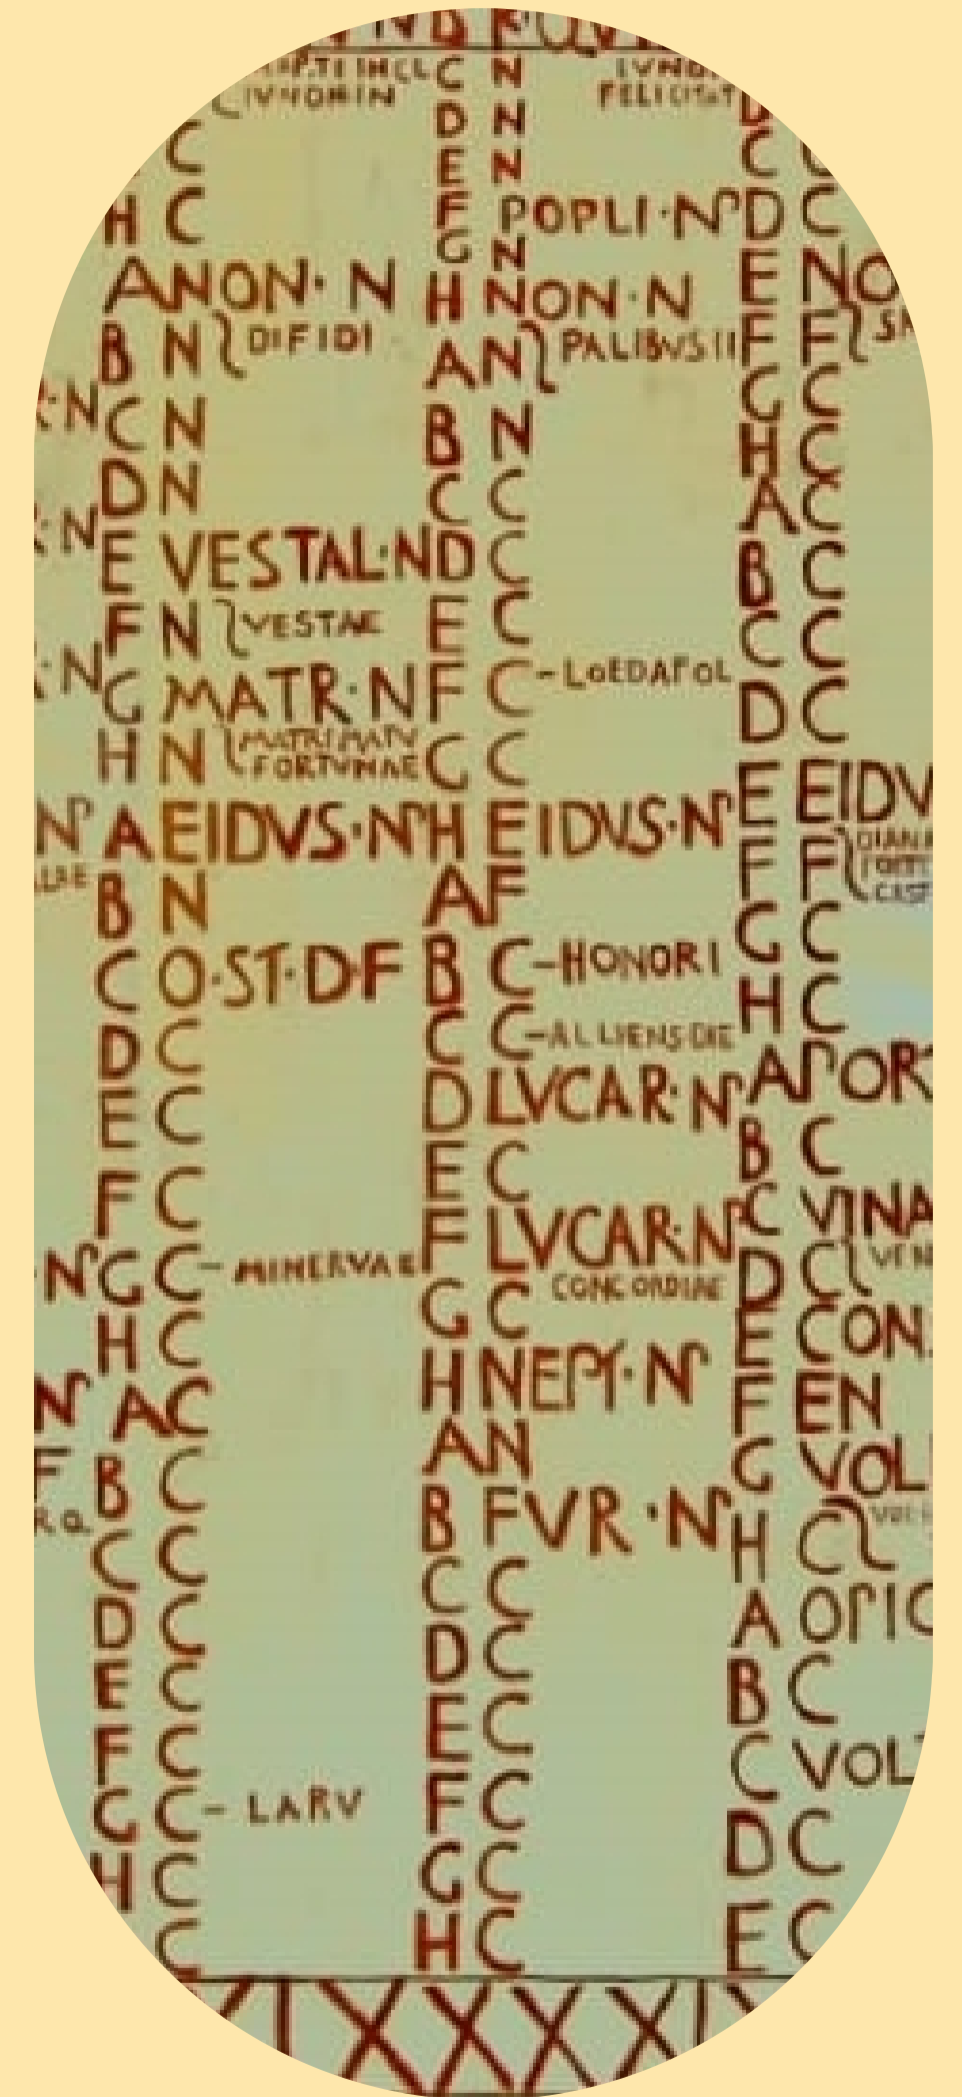 C
H C
A NON· N
B N DIFIDI
C N
D N
E VESTAL·N
F N VESTAE
G MATR·N
H N MATRI MATV
FORTVNAE
A EIDVS·N
B N
C Q·ST·D·F
D C
E C
F C
G C - MINERVAE
H C
A C
B C
C C
D C
E C
F C
G C - LARV
H C
C
C N
D N
E N
F POPLI·N
G N
H NON·N
A N PALIBVS II
B N
C C
D C
E C
F C - LOEDAPOL
G C
H EIDVS·N
A F
B C - HONORI
C C - ALLIENSDIE
D LVCAR·N
E C
F LVCAR·N
G C CONCORDIAE
H NEPT·N
A N
B FVR·N
C C
D C
E C
F C
G C
H C
XXXX
FELICITAT
C
D C
E NO
F F
G C
H C
A C
B C
C C
D C
E EIDV
F F DIANA
CAST
G C
H C
A PORT
B C
C VINA
D C VEN
E CON
F EN
G VOL
H C
A OPIC
B C
C VOLT
D C
E C